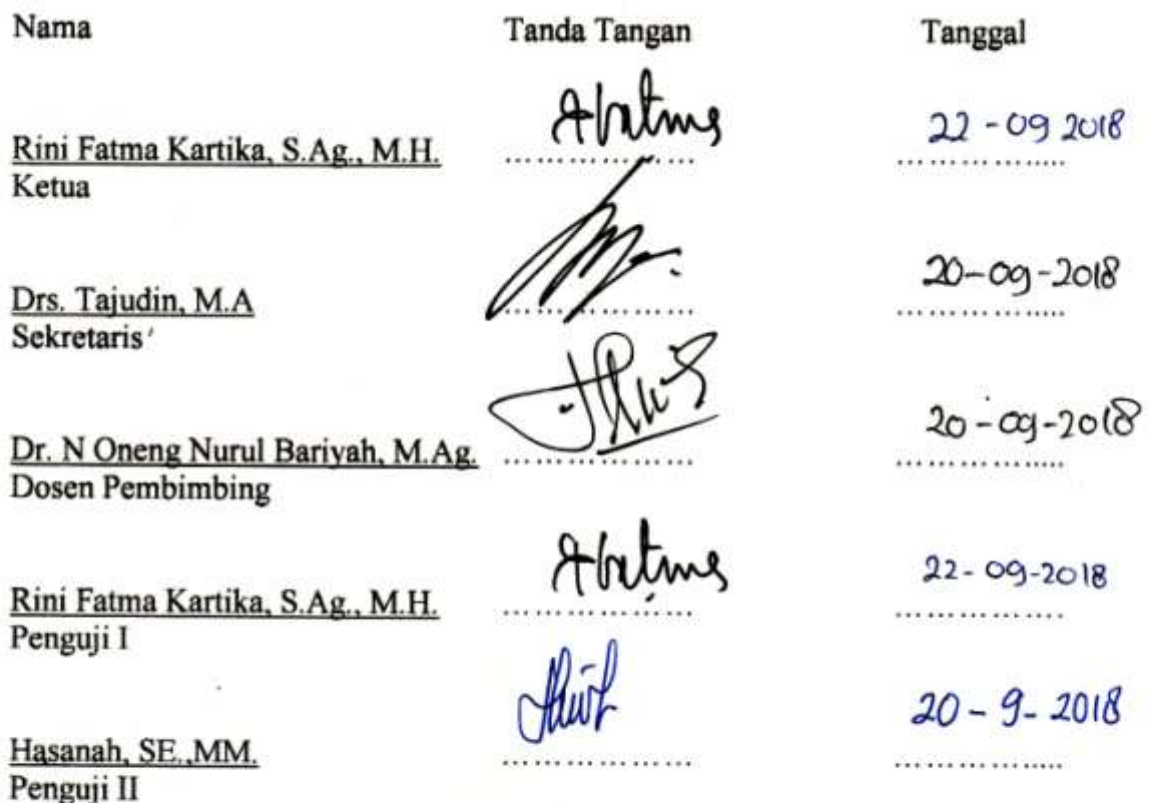 Nama Tanda Tangan Tanggal
22 - 09 2018
Rini Fatma Kartika, S.Ag., M.H. ..................
Ketua
20-09-2018
Drs. Tajudin, M.A ..................
Sekretaris
20-09-2018
Dr. N Oneng Nurul Bariyah, M.Ag. ..................
Dosen Pembimbing
22-09-2018
Rini Fatma Kartika, S.Ag., M.H. ..................
Penguji I
20-9-2018
Hasanah, SE.,MM. ..................
Penguji II